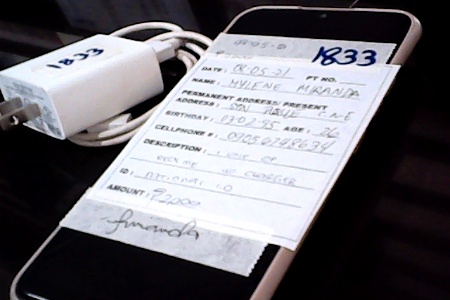 1833
1833
DATE: 08-05-21 PT NO.
NAME: MYLENE MIRANDA
PERMANENT ADDRESS/PRESENT
ADDRESS: SAN JOSE
BIRTHDAY: 03-02-95 AGE: 26
CELLPHONE #:
DESCRIPTION: 1 UNIT OF
REALME W/ CHARGER
ID: NATIONAL ID
AMOUNT: ₱2,000